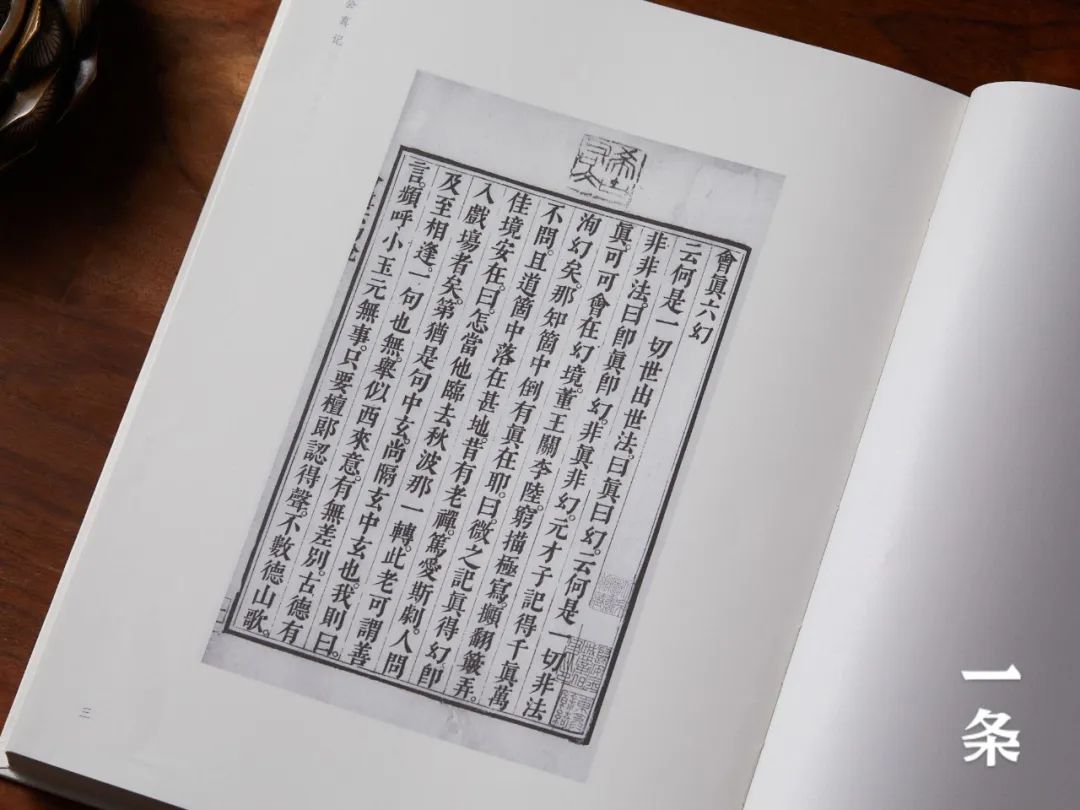 会真记
會眞六幻
云何是一切世出世法。曰眞曰幻。云何是一切非法
非非法。曰卽眞卽幻。非眞非幻。元才子記得千眞萬
眞。可可會在幻境。董王關李陸。窮描極寫。攧翻簸弄。
洵幻矣。那知箇中倒有眞在耶。曰。微之記眞得幻卽
不問。且道箇中落在甚地。昔有老禪。篤愛斯劇。人問
佳境安在。曰。怎當他臨去秋波那一轉。此老可謂善
入戲場者矣。第猶是句中玄。尚隔玄中玄也。我則曰。
及至相逢。一句也無。舉似西來意。有無差別。古德有
言。頻呼小玉元無事。只要檀郎認得聲。不數德山歌。
三
一条